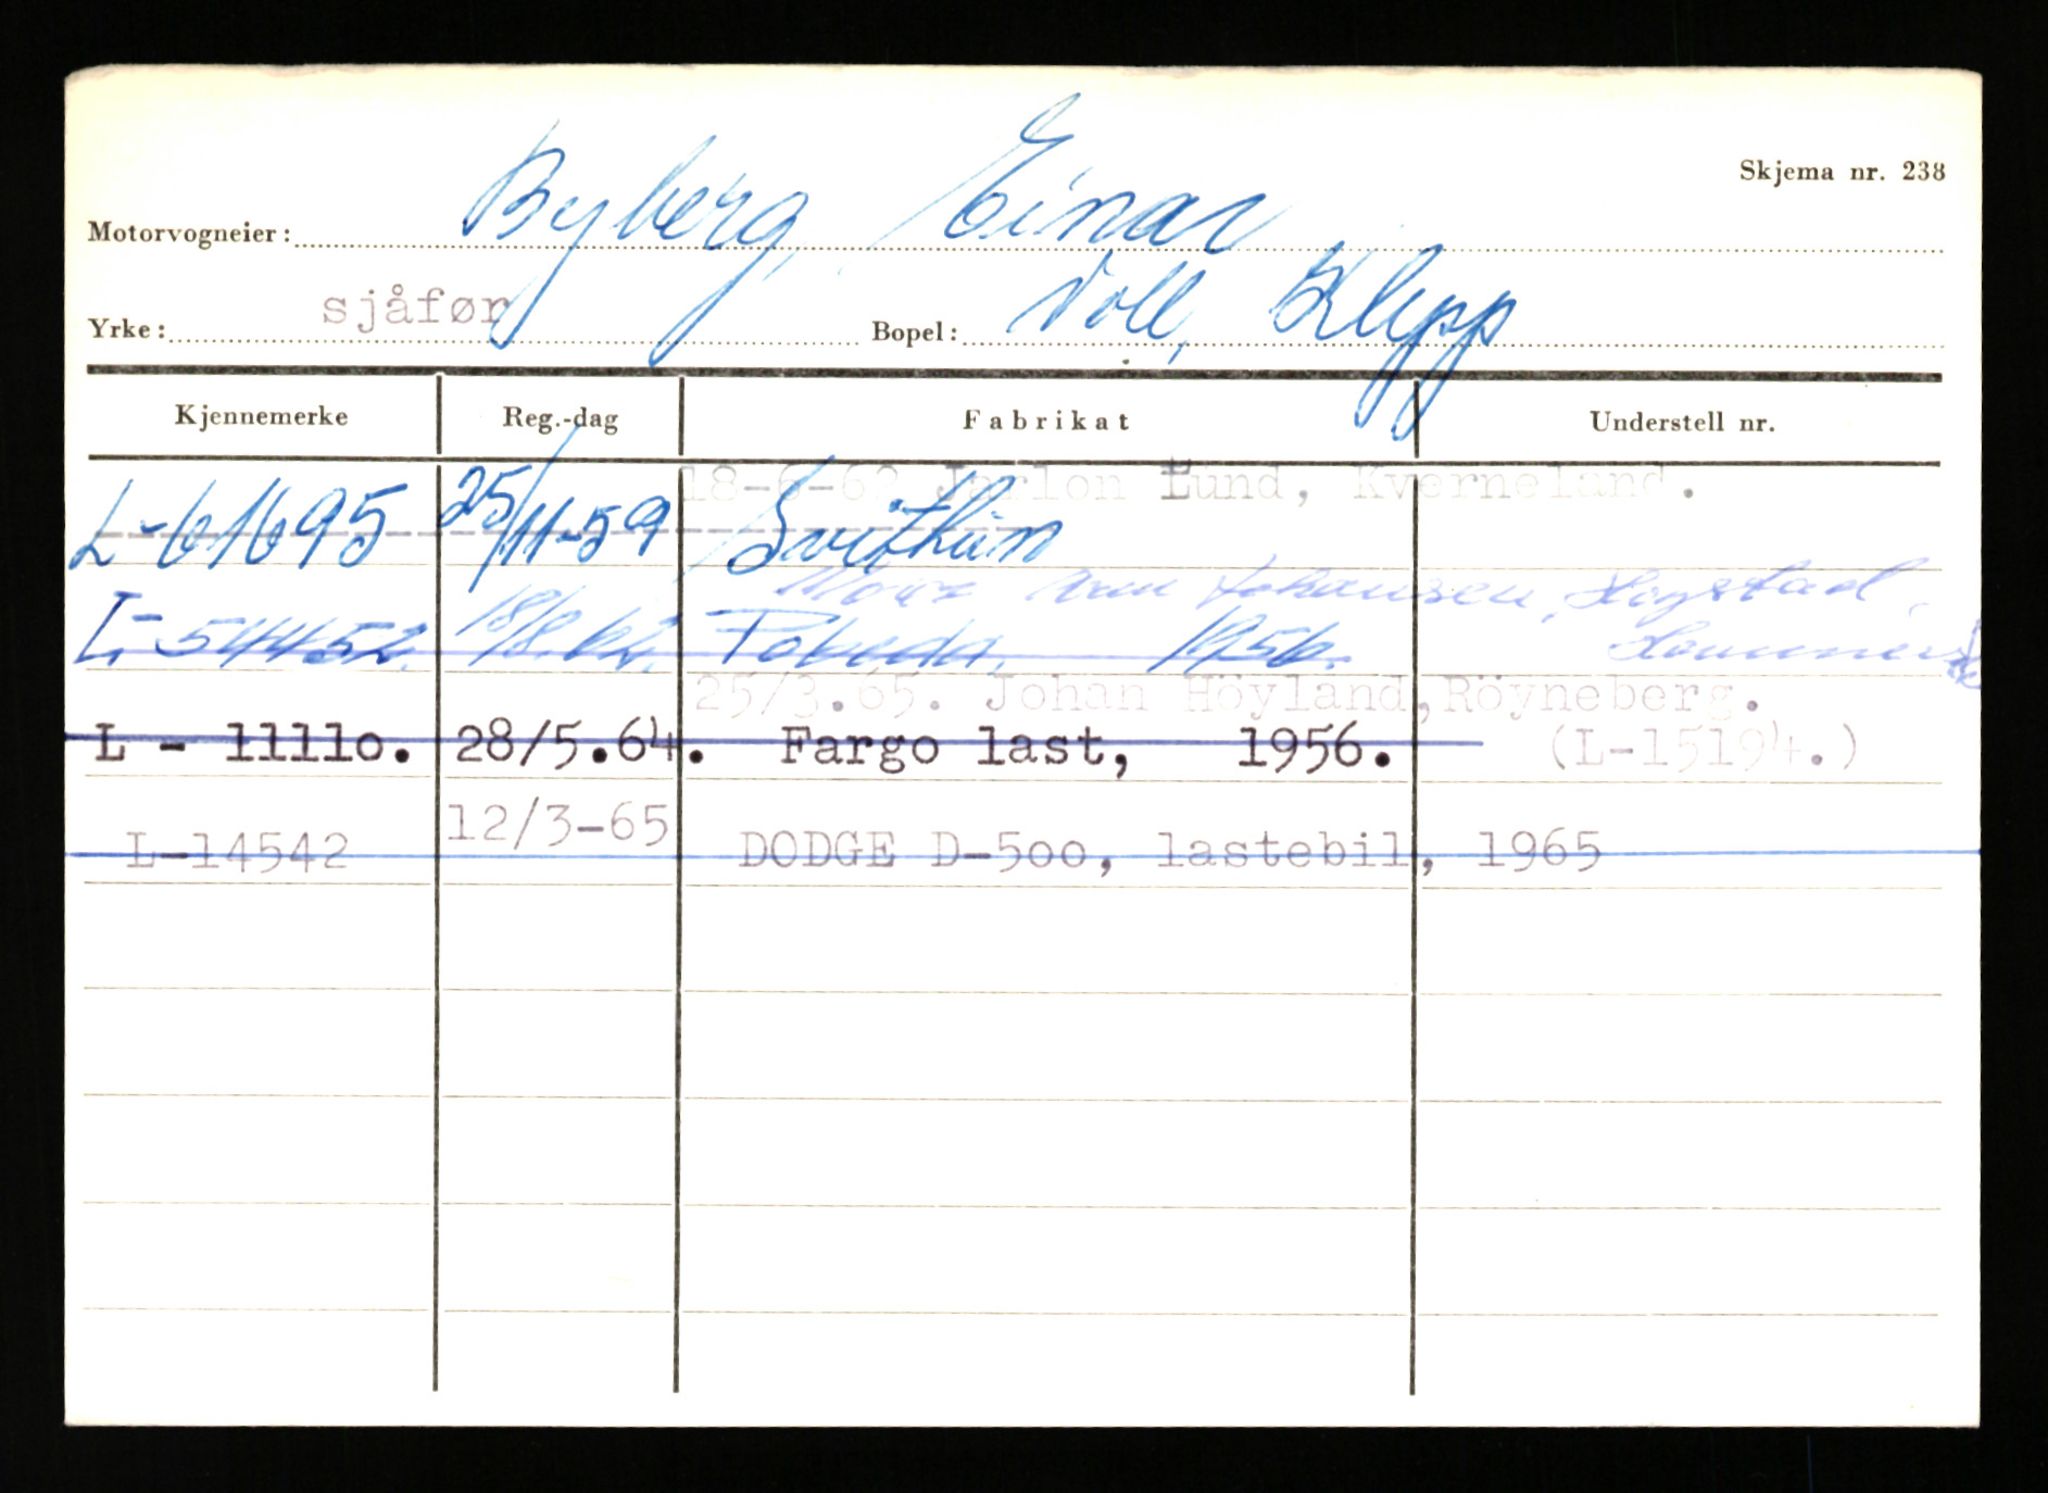 Skjema nr. 238
Motorvogneier: Byberg, Einar
Yrke: sjåfør Bopel: Voll, Klepp
Kjennemerke Reg.-dag Fabrikat Understell nr.
18-6-62 Jarlon Lund, Kverneland.
L-61695 25/11-59 Svithun
Johansen, Høgstad,
L-54452. 18/8.62. Pobeda. 1956.
25/3.65. Johan Höyland, Röyneberg.
L - 11110. 28/5.64. Fargo last, 1956. (L-15194.)
L-14542 12/3-65 DODGE D-500, lastebil, 1965